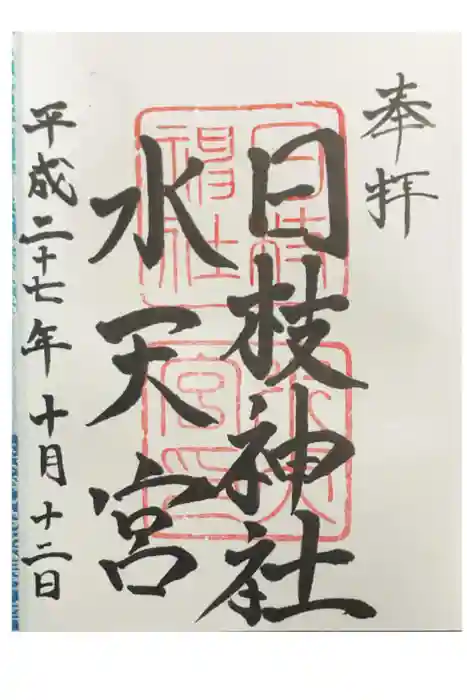 奉拝
日枝神社
水天宮
平成二十七年十月十二日